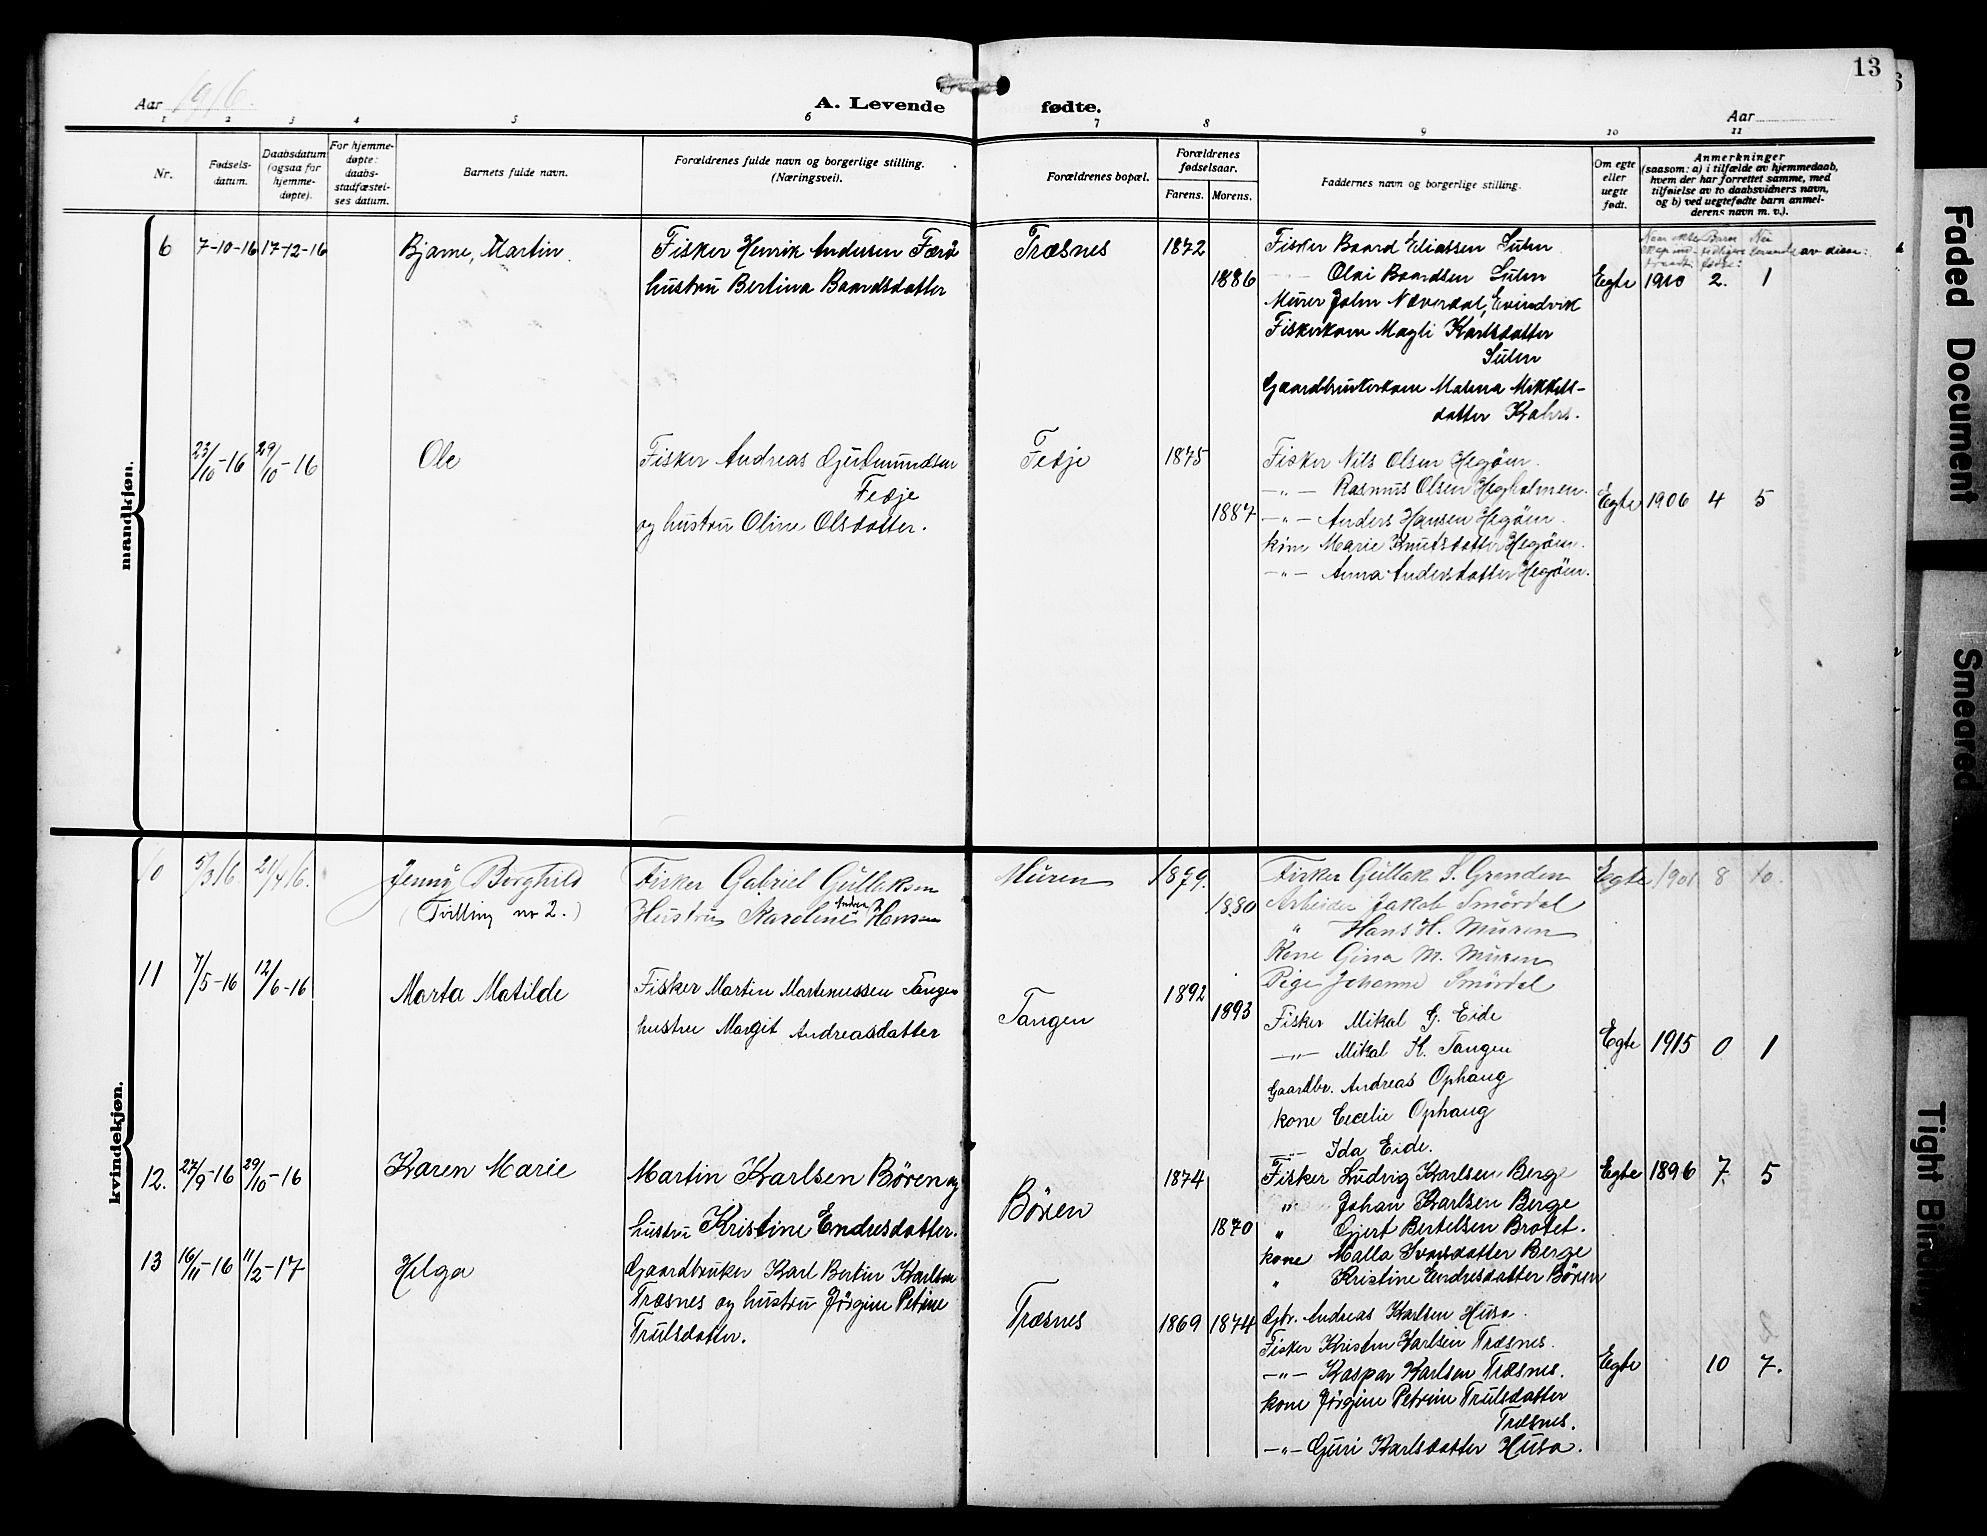 13
Aar 1916.
A. Levende fødte.
Aar
1 2 3 4 5 6 7 8 9 10 11
Nr.
Fødsels-
datum.
Daabsdatum
(ogsaa for
hjemme-
døpte).
For hjemme-
døpte:
daabs-
stadfæstel-
ses datum.
Barnets fulde navn.
Forældrenes fulde navn og borgerlige stilling.
(Næringsvei).
Forældrenes bopæl.
Forældrenes
fødselsaar.
Farens. Morens.
Faddernes navn og borgerlige stilling.
Om egte
eller
uegte
født.
Anmerkninger
(saasom: a) i tilfælde av hjemmedaab,
hvem der har forrettet samme, med
tilføielse av to daabsvidners navn,
og b) ved uegtefødte barn anmel-
derens navn m. v.).
mandkjøn.
6 7-10-16 17-12-16 Bjarne, Martin
Fisker Henrik Andersen Færö
hustru Bertina Baardsdatter
Træsnes 1872
1886
Fisker Baard Eliassen Sulen
Olai Baardsen Sulen
Murer John Næverdal, Evindvik
Fiskerkone Magli Karlsdatter
Sulen
Gaardbrukerkone Malena Mikkels-
datter Kahrs.
av disse:
Egte 1910 2. 1
23/10-16 29/10-16 Ole
Fisker Andreas Gjertmundsen
Fedje
og hustru Oline Olsdatter.
Fedje 1875
1887
Fisker Nils Olsen Hegöen.
-"- Rasmus Olsen Hegholmen.
-"- Anders Hansen Hegöen.
kone Marie Knutsdatter Hegöen.
-"- Anna Andersdatter Hegöen.
Egte 1906 4 5
kvindekjøn.
10 5/3 16. 21/4 16. Jenny Berghild
(Tvilling nr 2.)
Fisker Gabriel Gullaksen
Hustru Karoline Hansen
Muren 1879.
1880
Fisker Gullak S. Grenden
Arbeider Jakob Smördal
" Hans H. Muren
Kone Gina M. Muren
Pige Johanne Smördal
Egte 1901 8 10.
11 7/5-16 12/6-16 Marta Matilde
Fisker Martin Martinussen Tangen
hustru Margit Andreasdatter
Tangen 1892
1893
Fisker Mikal G. Eide
-"- Mikal K. Tangen
Gaardbr. Andreas Ophaug
kone Cecelie Ophaug
-"- Ida Eide.
Egte 1915 0 1
12. 27/9-16 29/10-16 Karen Marie
Martin Karlsen Bören og
hustru Kristine Endresdatter.
Bören 1874
1870
Fisker Ludvig Karlsen Berge
" Johan Karlsen Berge
" Gjert Bertelsen Brotet.
kone Malla Ivarsdatter Berge
" Kristine Endresdatter Bören
Egte 1896 7. 5
13 16/11-16 11/2-17 Helga
Gaardbruker Karl Bertin Karlsen
Træsnes og hustru Jörgine Petrine
Trulsdatter.
Træsnes 1869 1874
Gbr. Andreas Karlsen Husa.
Fisker Kristen Karlsen Træsnes.
-"- Kaspar Karlsen Træsnes.
kone Jörgine Petrine Trulsdatter
Træsnes.
-"- Guri Karlsdatter Husa.
Egte 10 7.
Faded Document
Smeared
Tight Binding